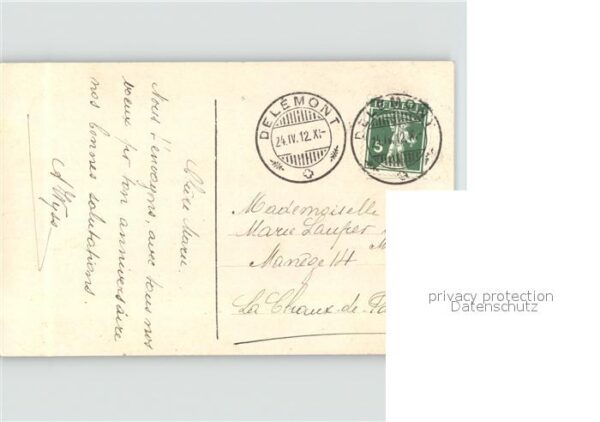 Chère Marie.
Nous t'envoyons, avec tous nos
voeux pr ton anniversaire
nos bonnes salutations.
A Wyss
DELÉMONT
24.IV.12.XI-
DELÉMONT
5
Mademoiselle
Marie Laufer
Manège 14
La Chaux-de-Fo
privacy protection
Datenschutz